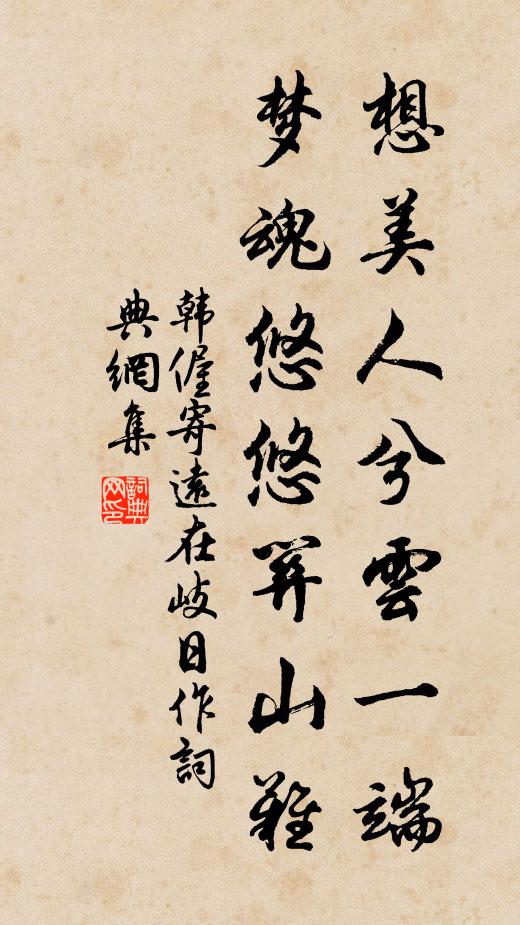 想美人兮雲一端
梦魂悠悠关山難
韩偓寄遠在岐日作詞
典網集
詞典
网印